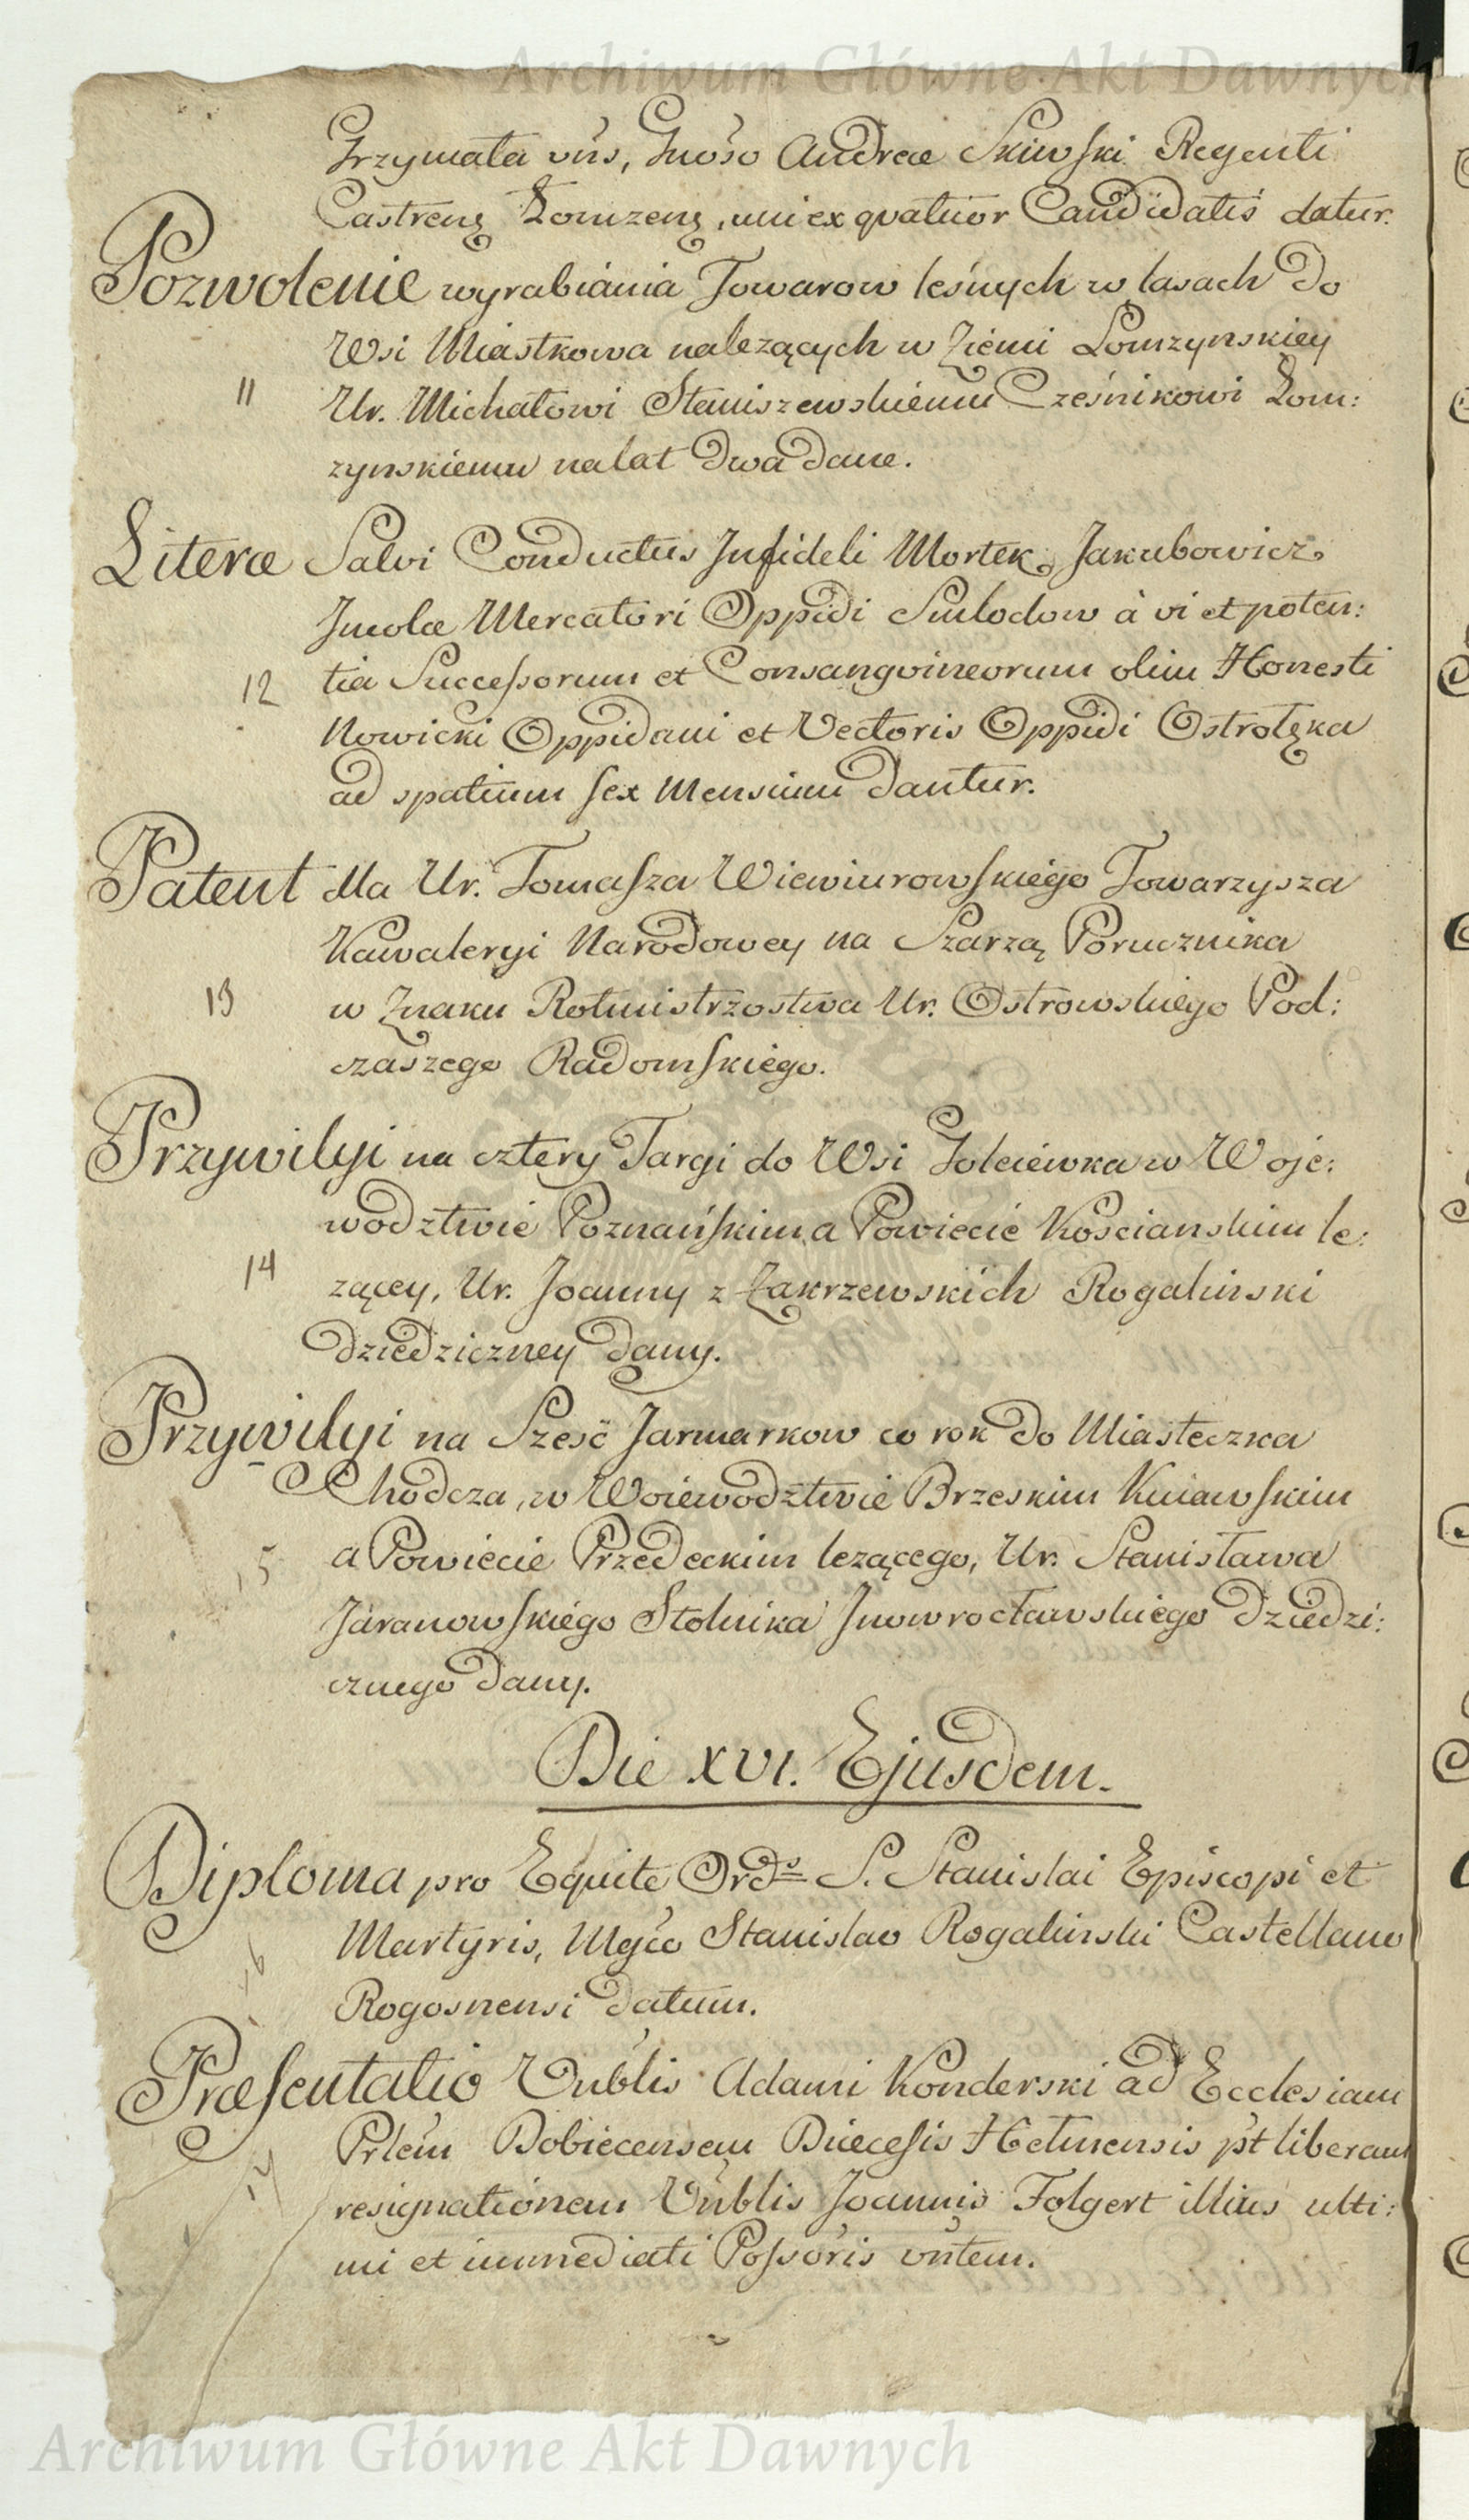 Archiwum Główne Akt Dawnych
Grzymała vńs, Gnōso Andreæ Skiwski Regenti
Castrens Łomzens, uni ex qvatuor Candidatis datur.
Pozwolenie wyrabiania Towarow leśnych w lasach do
Wsi Miastkowa nalezących w Ziemi Łomzynskiey
11 Ur. Michałowi Staniszewskiemu Cześnikowi Łom:
zynskiemu na lat dwa dane.
Literæ Salvi Conductus Infideli Mortek Jakubowicz
Incolæ Mercatori Oppidi Smlodow à vi et poten:
12 tia Successorum et Consangvineorum olim Honesti
Nowicki Oppidani et Vectoris Oppidi Ostrołęka
ad spatium sex Mensium dantur.
Patent dla Ur. Tomasza Wiewiurowskiego Towarzysza
Kawaleryi Narodowey na Szarzą Porucznika
13 w Znaku Rotmistrzostwa Ur. Ostrowskiego Pod:
czaszego Radomskiego.
Przywilyi na cztery Targi do Wsi Golciewka w Woje:
wodztwie Poznańskim a Powiecie Koscianskim le:
14 zącey, Ur. Joanny z Zakrzewskich Rogalinski
dziedziczney dany.
Przywilyi na Szesć Jarmarkow co rok do Miasteczka
Chodcza, w Woiewodztwie Brzeskim Kuiawskim
15 a Powiecie Przedeckim lezącego, Ur. Stanisława
Jaranowskiego Stolnika Inowrocławskiego dziedzi:
cznego dany.
Die XVI. Ejusdem.
Diploma pro Equite Ords S. Stanislai Episcopi et
Martyris, Mgćo Stanislao Rogalinski Castellano
16 Rogosnensi datum.
Præsentatio Vnblis Adami Konderski ad Ecclesiam
Prlem Bobiecensem Diæcesis Helmensis pt liberam
17 resignationem Vnblis Joannis Folgert illius ulti:
mi et immediati Possoris vntem.
Archiwum Główne Akt Dawnych